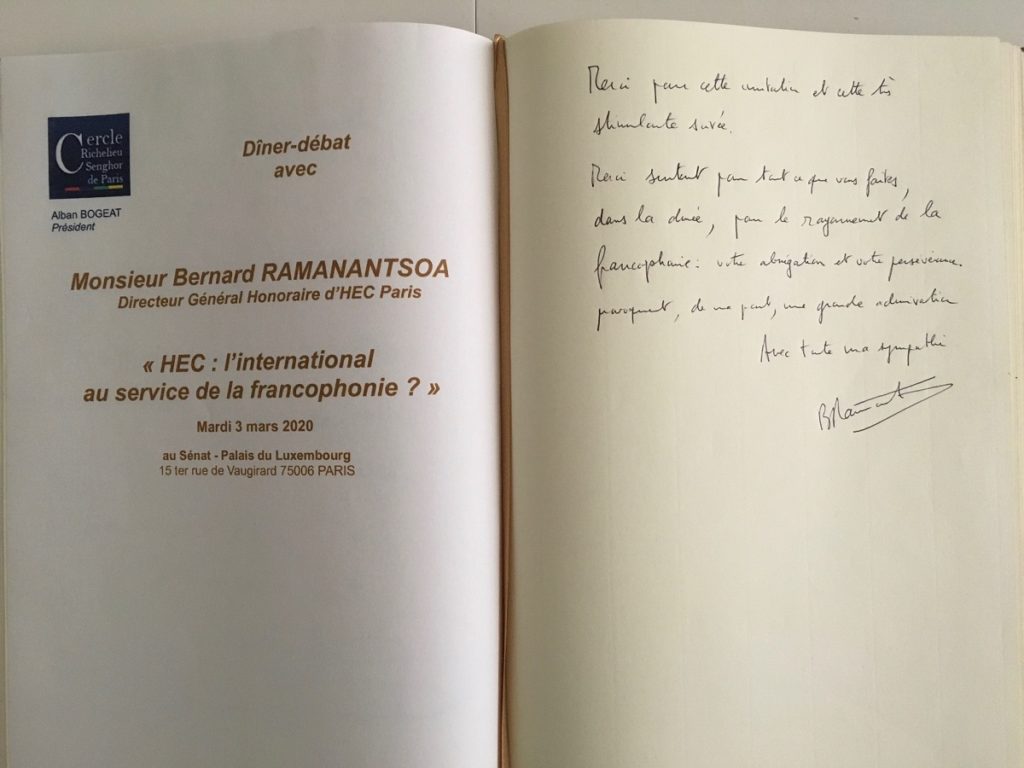 Cercle
Richelieu
Senghor
de Paris
Alban BOGEAT
Président
Dîner-débat
avec
Monsieur Bernard RAMANANTSOA
Directeur Général Honoraire d'HEC Paris
« HEC : l'international
au service de la francophonie ? »
Mardi 3 mars 2020
au Sénat - Palais du Luxembourg
15 ter rue de Vaugirard 75006 PARIS
Merci pour cette invitation et cette très
stimulante soirée.
Merci surtout pour tout ce que vous faites,
dans la durée, pour le rayonnement de la
francophonie : votre abnégation et votre persévérance
provoquent, de ma part, une grande admiration
Avec toute ma sympathie